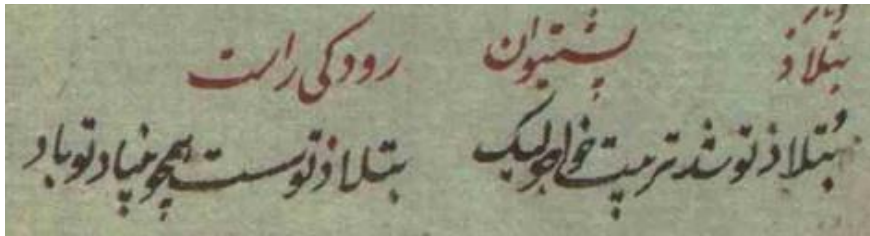 بُتلاذ پشتیوان رودکی راست
بُتلاذ تو شد تربیت خواجه ولیک بتلاذ تو سست همچو بنیاد تو باد